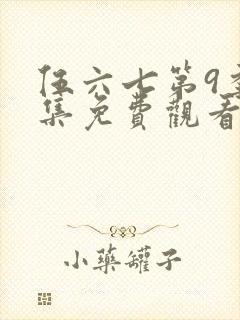 伍六七第9季
集免費觀看
小藥罐子